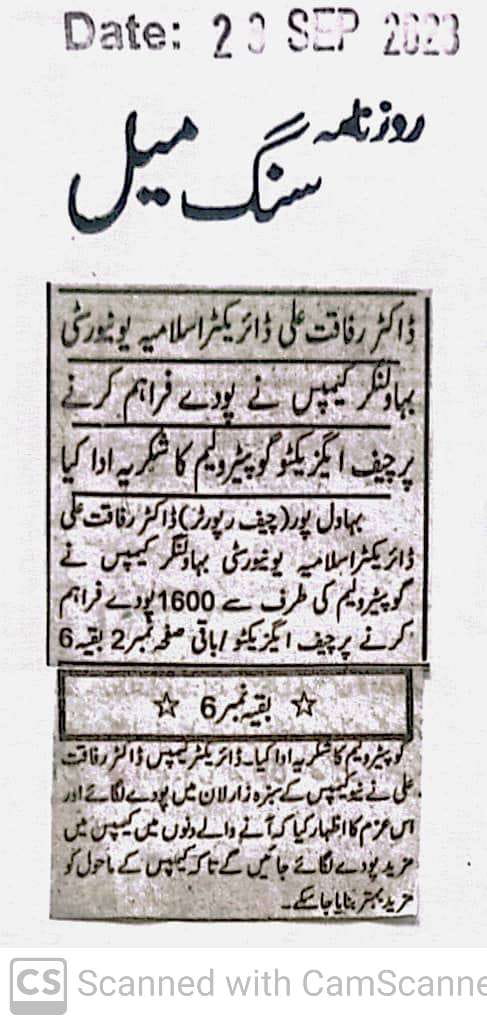 Date: 23 SEP 2023
روزنامہ
سنگ میل
ڈاکٹر رفاقت علی ڈائریکٹر اسلامیہ یونیورسٹی
بہاولنگر کیمپس نے پودے فراہم کرنے
پر چیف ایگزیکٹو گو پیٹرولیم کا شکریہ ادا کیا
بہاول پور (چیف رپورٹر) ڈاکٹر رفاقت علی
ڈائریکٹر اسلامیہ یونیورسٹی بہاولنگر کیمپس نے
گو پیٹرولیم کی طرف سے 1600 پودے فراہم
کرنے پر چیف ایگزیکٹو / باقی صفحہ نمبر 2 بقیہ 6
☆ بقیہ نمبر 6 ☆
گو پیٹرولیم کا شکریہ ادا کیا۔ ڈائریکٹر کیمپس ڈاکٹر رفاقت
علی نے نیو کیمپس کے سبزہ زار لان میں پودے لگائے اور
اس عزم کا اظہار کیا کہ آنے والے دنوں میں کیمپس میں
مزید پودے لگائے جائیں گے تاکہ کیمپس کے ماحول کو
مزید بہتر بنایا جا سکے۔
CS Scanned with CamScanne